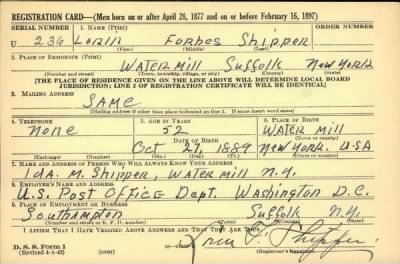 REGISTRATION CARD—(Men born on or after April 28, 1877 and on or before February 16, 1897)
SERIAL NUMBER 1. NAME (Print) ORDER NUMBER
U 236 Lorin Forbes Shipper
(First) (Middle) (Last)
2. PLACE OF RESIDENCE (Print)
WATER Mill Suffolk New York
(Number and street) (Town, township, village, or city) (County) (State)
[THE PLACE OF RESIDENCE GIVEN ON THE LINE ABOVE WILL DETERMINE LOCAL BOARD
JURISDICTION; LINE 2 OF REGISTRATION CERTIFICATE WILL BE IDENTICAL]
3. MAILING ADDRESS
SAME
(Mailing address if other than place indicated on line 2. If same insert word same)
4. TELEPHONE 5. AGE IN YEARS 6. PLACE OF BIRTH
None 52 WATER Mill
DATE OF BIRTH (Town or county)
Oct 27, 1889 New York. U.S.A
(Exchange) (Number) (Mo.) (Day) (Yr.) (State or country)
7. NAME AND ADDRESS OF PERSON WHO WILL ALWAYS KNOW YOUR ADDRESS
IdA. M. Shipper, Water Mill N.Y.
8. EMPLOYER'S NAME AND ADDRESS
U.S. Post Office Dept. Washington D.C.
9. PLACE OF EMPLOYMENT OR BUSINESS
Southampton Suffolk N.Y.
(Number and street or R. F. D. number) (Town) (County) (State)
I AFFIRM THAT I HAVE VERIFIED ABOVE ANSWERS AND THAT THEY ARE TRUE.
D. S. S. Form 1
(Revised 4-1-42) (over) (Registrant's signature)